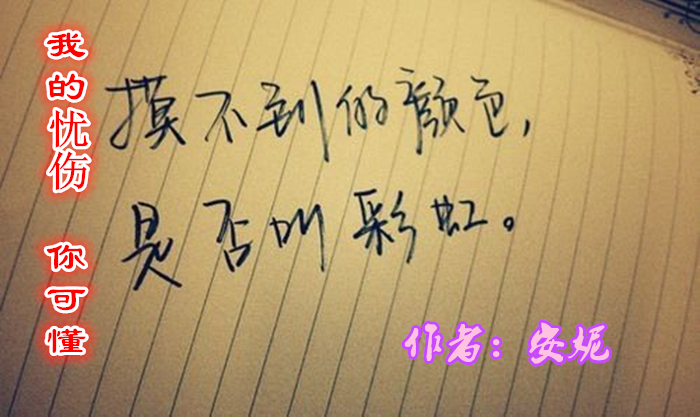 我的忧伤 你可懂
摸不到的颜色，
是否叫彩虹。
作者：安妮